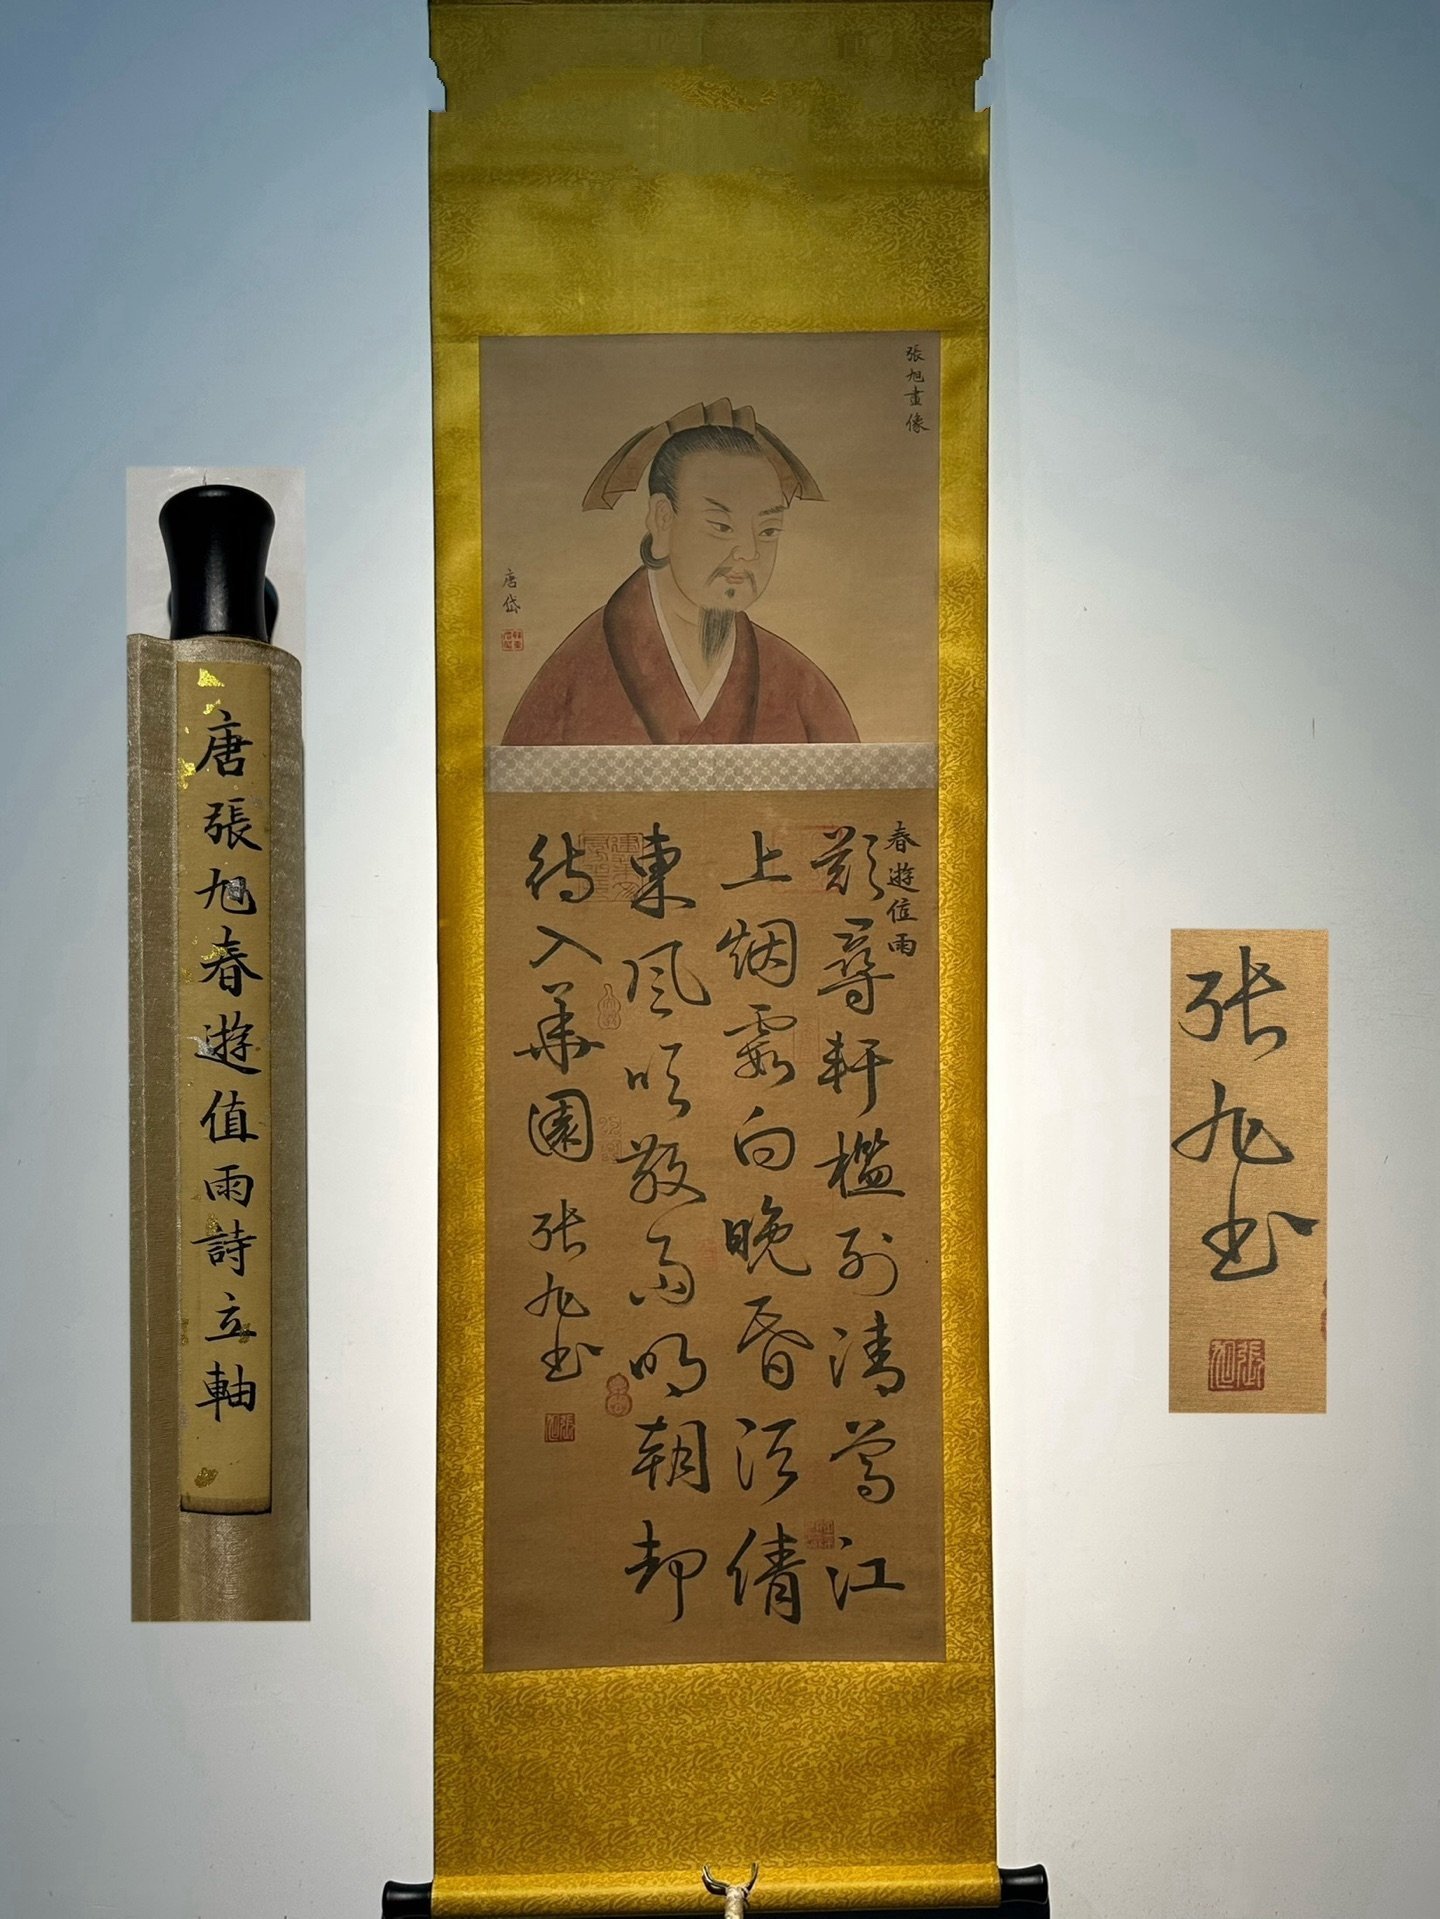 唐張旭春遊值雨詩立軸
張旭畫像
唐岱
春遊值雨
欲尋軒檻列清尊江
上烟霞向晚昏須倩
東風吹散雨明朝却
待入華園
張旭書
張旭
張旭書
張旭